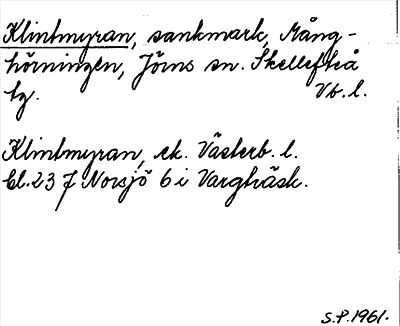 Klintmyran, sankmark, Mång-
hörningen, Jörns sn. Skellefteå
tg. Vb. l.
Klintmyran, ek. Västerb. l.
Bl. 23 J Norsjö 6 i Vargträsk.
S.P. 1961.